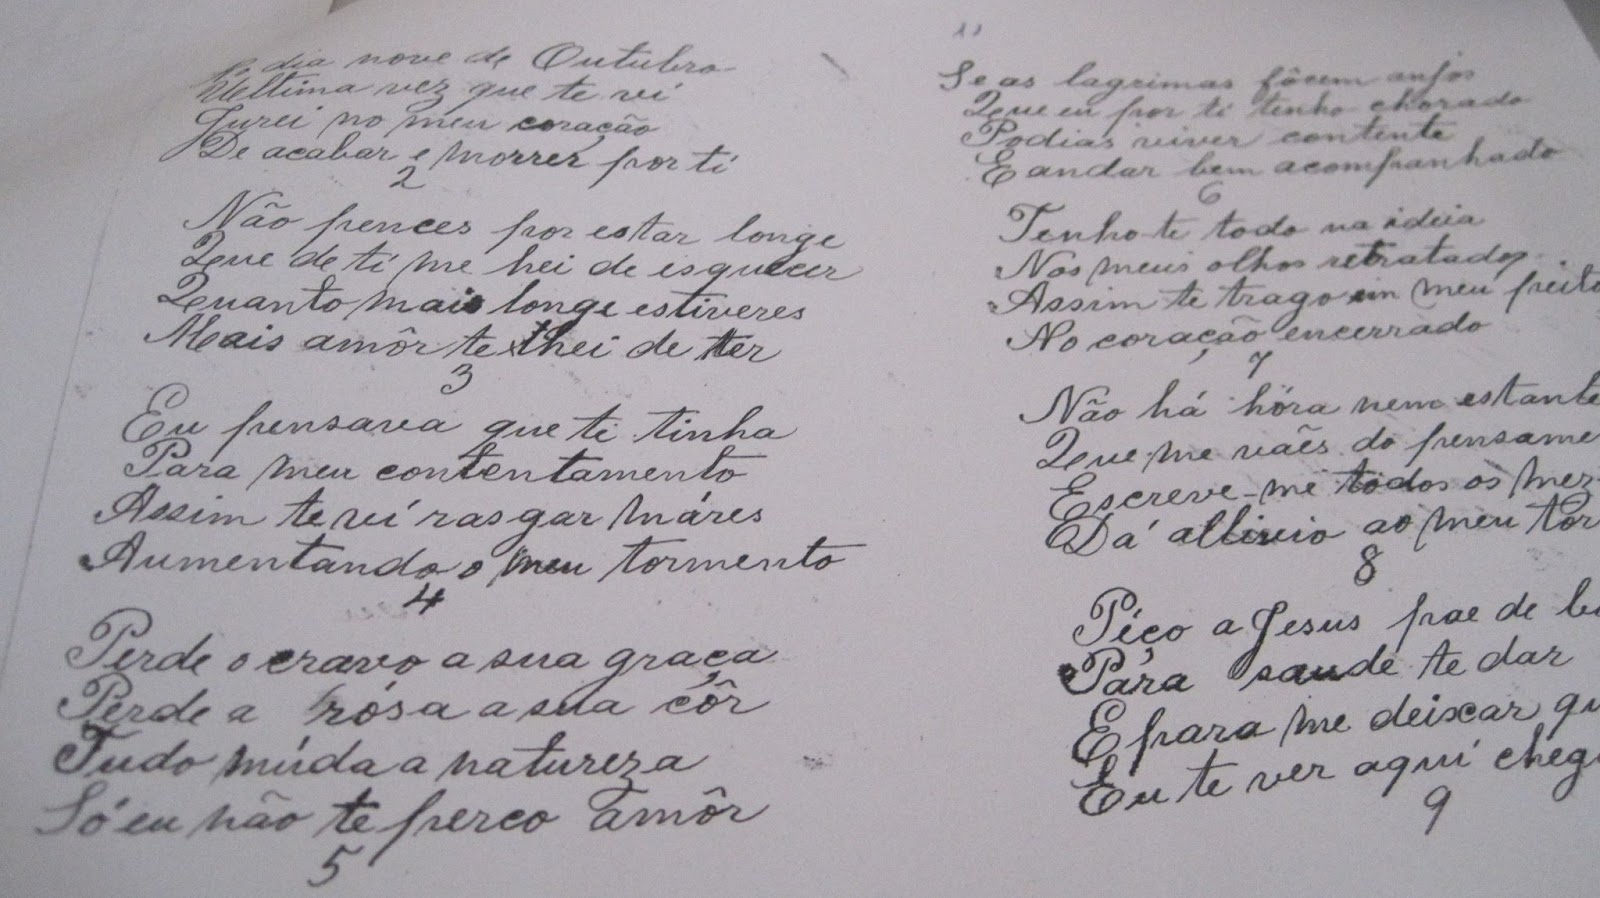 O dia nove de Outubro
Ultima vez que te vi
Jurei no meu coração
De acabar e morrer por ti
2
Não pences por estar longe
Que de ti me hei de esquecer
Quanto mais longe estiveres
Mais amôr te hei de ter
3
Eu pensava que te tinha
Para meu contentamento
Assim te ví rasgar máres
Aumentando o meu tormento
4
Perde o cravo a sua graça
Perde a rósa a sua côr
Tudo múda a natureza
Só eu não te perco amôr
5
11
Se as lagrimas fôcem anjos
Que eu por ti tenho chorado
Podias viver contente
E andar bem acompanhado
6
Tenho-te todo na ideia
Nos meus olhos retratados
Assim te trago em meu peito
No coração encerrado
7
Não há hóra nem estante
Que me vaês do pensame
Escreve-me todos os mez
Dá allivio ao meu tor
8
Péço a Jesus pae de bo
Pára saude te dar
E para me deixar qu
Eu te ver aquí cheg
9